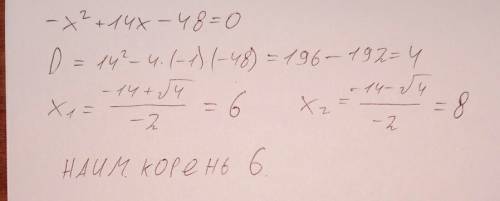 -x² + 14x - 48 = 0
D = 14² - 4·(-1)(-48) = 196 - 192 = 4
x₁ = (-14 + √4)/(-2) = 6 x₂ = (-14 - √4)/(-2) = 8
НАИМ. КОРЕНЬ 6.